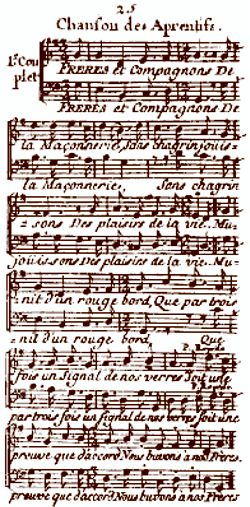 25
Chanson des Aprentifs.
1.er Couplet
FRERES et Compagnons De
FRERES et Compagnons De
la Maçonnerie, Sans chagrin jouis-
la Maçonnerie, Sans chagrin
-sons Des plaisirs de la vie. Mu-
jouissons Des plaisirs de la vie. Mu-
-nit d'un rouge bord, Que par trois
-nit d'un rouge bord, Que
fois un Signal de nos verres Soit une
par trois fois un signal de nos verres soit une
preuve que d'accord Nous buvons à nos Freres.
preuve que d'accord Nous buvons à nos Freres